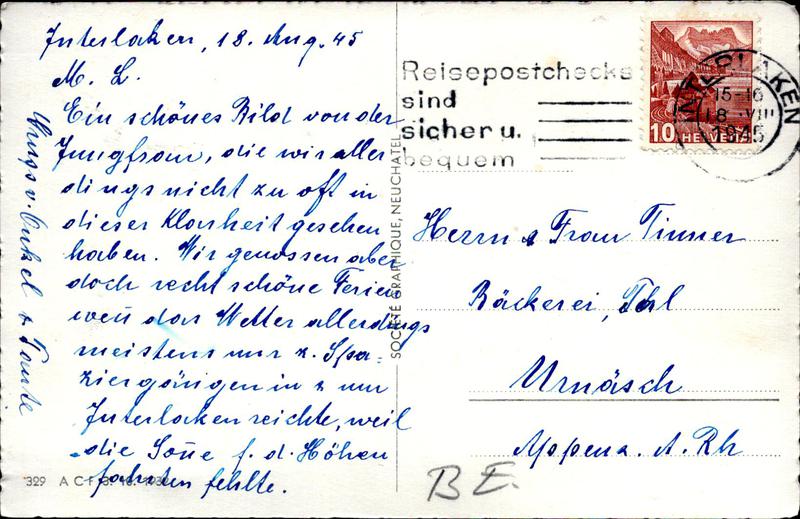 Interlaken, 18. Aug. 45
M. L.
Ein schönes Bild von der
Jungfrau, die wir aller
dings nicht zu oft in
dieser Klarheit gesehen
haben. Wir genossen aber
doch recht schöne Ferien
wen̄ das Wetter allerdings
meistens nur z. Spa-
ziergängen in & um
Interlaken reichte, weil
die Son̄e f. d. Höhen
fahrten fehlte.
v. Onkel & Tante
329 A C F
SOCIÉTÉ GRAPHIQUE, NEUCHATEL
Reisepostchecks
sind
sicher u.
bequem
INTERLAKEN
15-16
18 VIII
1945
10 HELVETIA
Herrn & Frau Tinner
Bäckerei, Tal
Urnäsch
Appenz. A. Rh
BE.